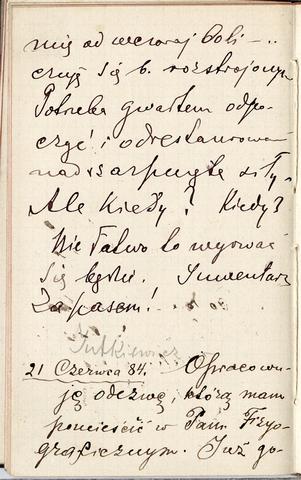 mię od wczoraj boli -..
czuję się b. rozstrojonym
Potrzeba gwałtem odpo-
czyć i odrestaurować
nadszarpnięte siły.
Ale kiedy? Kiedy?
Nie łatwo to wyrwać
się będzie. Inwentarz
za pasem!
Jutkiewicz
21 Czerwca 84. Opracowu-
ję odezwę, którą mam
pomieścić w Pam. Fizyo-
graficznym. Już go-